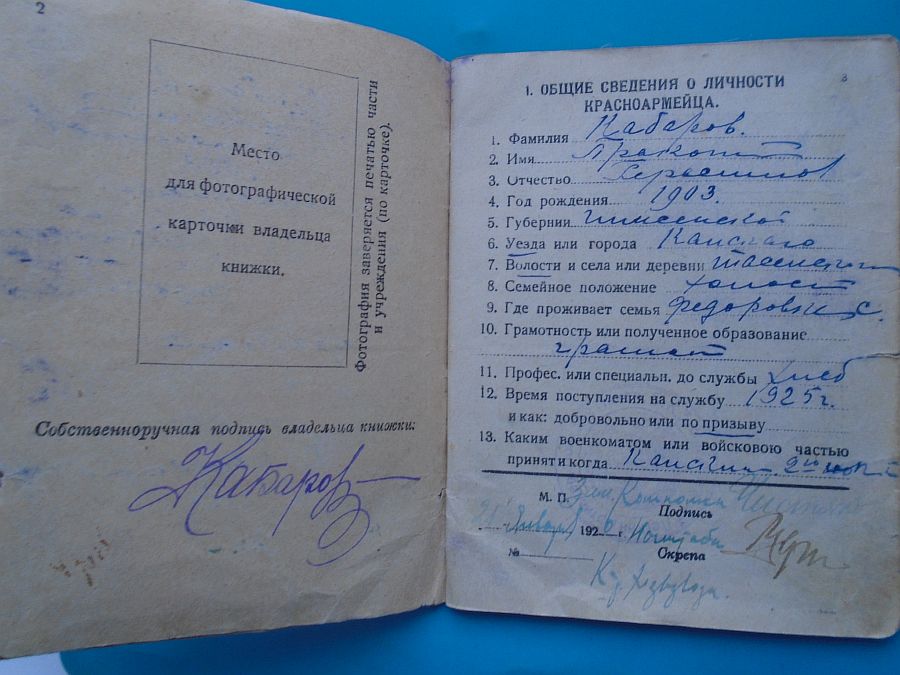 2
Место
для фотографической
карточки владельца
книжки.
Фотография заверяется печатью части
и учреждения (по карточке).
Собственноручная подпись владельца книжки:
Кабаров
3
I. ОБЩИЕ СВЕДЕНИЯ О ЛИЧНОСТИ
КРАСНОАРМЕЙЦА.
1. Фамилия Кабаров.
2. Имя
3. Отчество
4. Год рождения 1903.
5. Губернии
6. Уезда или города Канского
7. Волости и села или деревни
8. Семейное положение холост
9. Где проживает семья
10. Грамотность или полученное образование
грамот
11. Профес. или специальн. до службы хлеб
12. Время поступления на службу 1925 г.
и как: добровольно или по призыву
13. Каким военкоматом или войсковою частью
принят и когда Канским
М. П.
Подпись
Января 192 г.
№ Скрепа